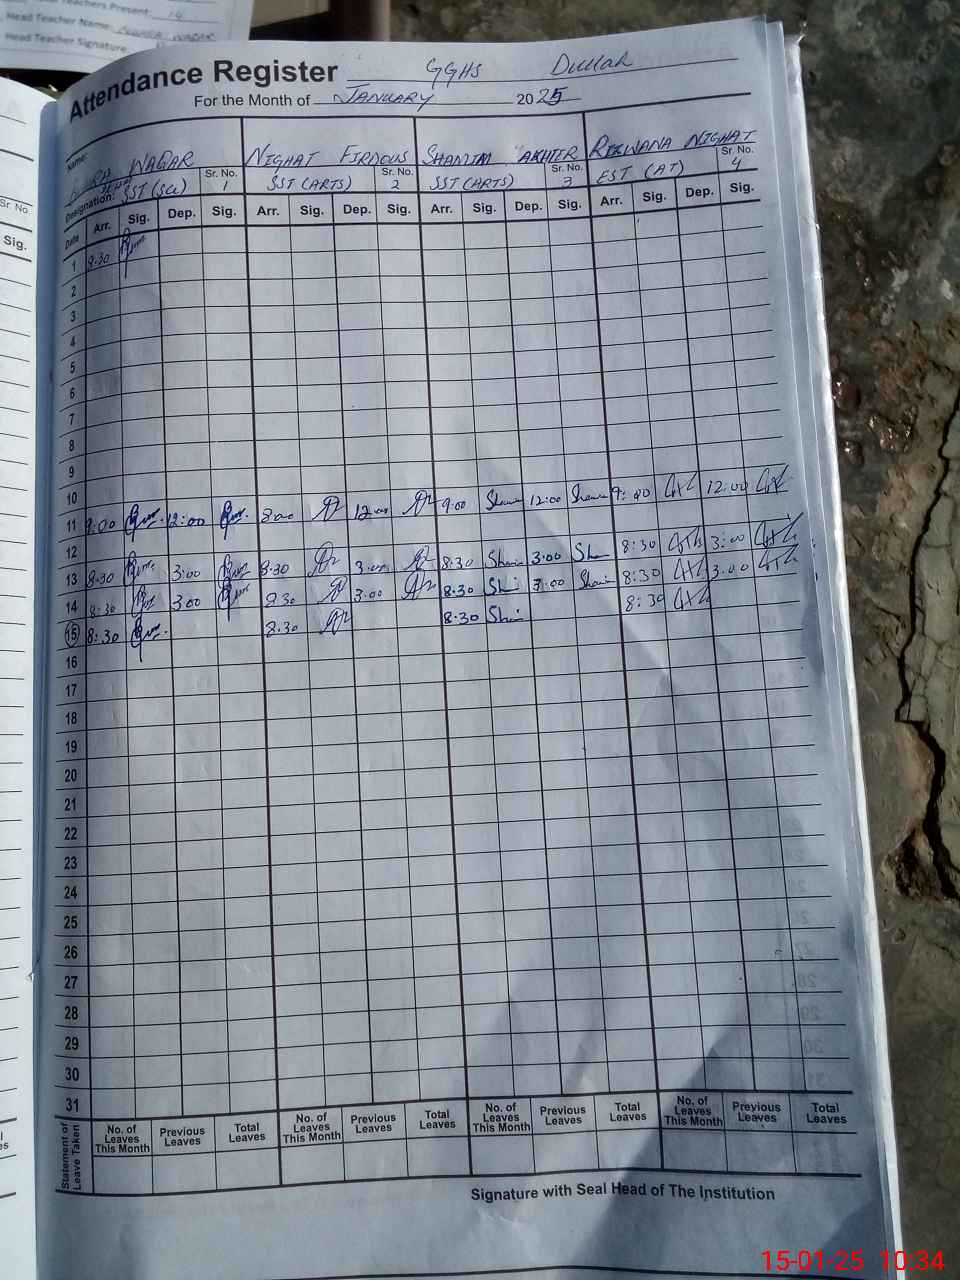 Teachers Present: 14
Head Teacher Name: WAGAR
Head Teacher Signature:
Attendance Register GGHS Dullar
For the Month of JANUARY 2025
Name: WAGAR NIGHAT FIRDOUS SHAMIM AKHTER RIZWANA NIGHAT
Designation: SST (Sci) Sr. No. 1 SST (ARTS) Sr. No. 2 SST (ARTS) Sr. No. 3 EST (AT) Sr. No. 4
Date Arr. Sig. Dep. Sig. Arr. Sig. Dep. Sig. Arr. Sig. Dep. Sig. Arr. Sig. Dep. Sig.
1 8.30
2
3
4
5
6
7
8
9
10
11 9:00 12:00 12:00 9:00 12:00 9:00 12:00
12
13 8.30 3:00 8.30 3:00 8:30 3:00 8:30 3:00
14 8:30 3:00 8.30 3:00 8:30 3:00 8:30 3:00
15 8:30 8.30 8.30 8:30
16
17
18
19
20
21
22
23
24
25
26
27
28
29
30
31
Statement of Leave Taken No. of Leaves This Month Previous Leaves Total Leaves No. of Leaves This Month Previous Leaves Total Leaves No. of Leaves This Month Previous Leaves Total Leaves No. of Leaves This Month Previous Leaves Total Leaves
Signature with Seal Head of The Institution
Sr. No.
Sig.
15-01-25 10:34